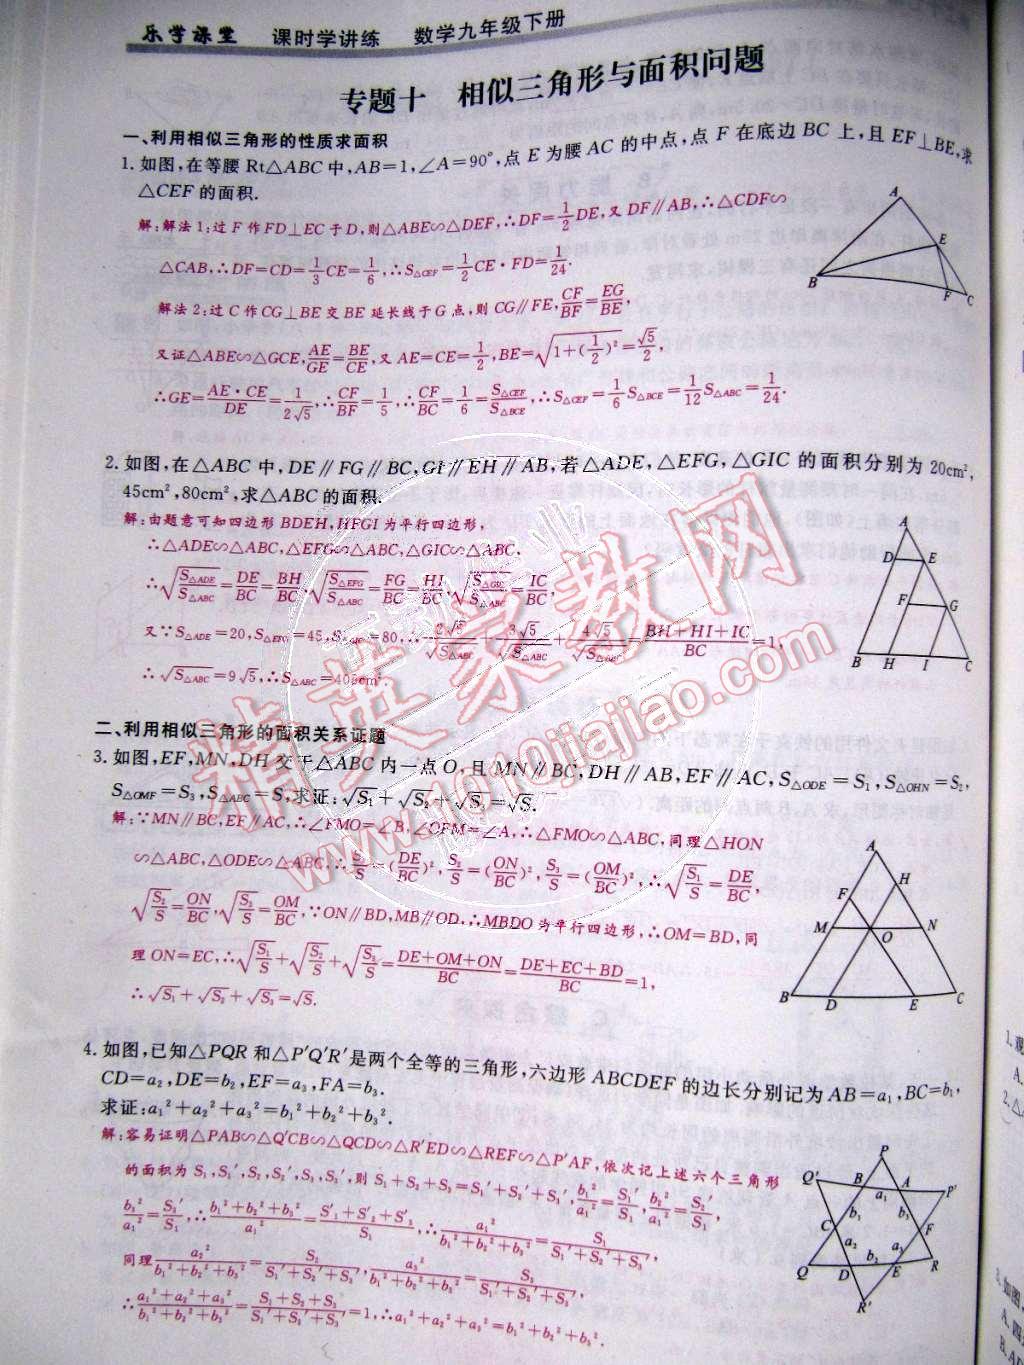 乐学课堂 课时学讲练 数学九年级下册
专题十 相似三角形与面积问题
一、利用相似三角形的性质求面积
1.如图,在等腰Rt△ABC中,AB=1,∠A=90°,点E为腰AC的中点,点F在底边BC上,且EF⊥BE,求
△CEF的面积.
解:解法1:过F作FD⊥EC于D,则△ABE∽△DEF,∴DF=1/2DE,又DF∥AB,∴△CDF∽
△CAB,∴DF=CD=1/3CE=1/6,∴S△CEF=1/2CE·FD=1/24.
解法2:过C作CG⊥BE交BE延长线于G点,则CG∥FE,CF/BF=EG/BE,
又证△ABE∽△GCE,AE/GE=BE/CE,又AE=CE=1/2,BE=√(1+(1/2)²)=√5/2,
∴GE=AE·CE/DE=1/(2√5),∴CF/BF=1/5,∴CF/BC=1/6=S△CEF/S△BCE,∴S△CEF=1/6S△BCE=1/12S△ABC=1/24.
2.如图,在△ABC中,DE∥FG∥BC,GI∥EH∥AB,若△ADE,△EFG,△GIC的面积分别为20cm²,
45cm²,80cm²,求△ABC的面积.
解:由题意可知四边形BDEH,HFGI为平行四边形,
∴△ADE∽△ABC,△EFG∽△ABC,△GIC∽△ABC,
∴√(S△ADE/S△ABC)=DE/BC=BH/BC,√(S△EFG/S△ABC)=FG/BC=HI/BC,√(S△GIC/S△ABC)=IC/BC,
又∵S△ADE=20,S△EFG=45,S△GIC=80,∴2√5/√S△ABC+3√5/√S△ABC+4√5/√S△ABC=(BH+HI+IC)/BC=1,
∴√S△ABC=9√5,∴S△ABC=405cm².
二、利用相似三角形的面积关系证题
3.如图,EF,MN,DH交于△ABC内一点O,且MN∥BC,DH∥AB,EF∥AC,S△ODE=S₁,S△OHN=S₂,
S△OMF=S₃,S△ABC=S,求证:√S₁+√S₂+√S₃=√S.
解:∵MN∥BC,EF∥AC,∴∠FMO=∠B,∠OFM=∠A,∴△FMO∽△ABC,同理△HON
∽△ABC,△ODE∽△ABC,∴S₁/S=(DE/BC)²,S₂/S=(ON/BC)²,S₃/S=(OM/BC)²,∴√(S₁/S)=DE/BC,
√(S₂/S)=ON/BC,√(S₃/S)=OM/BC,∵ON∥BD,MB∥OD,∴MBDO为平行四边形,∴OM=BD,同
理ON=EC,∴√(S₁/S)+√(S₂/S)+√(S₃/S)=(DE+OM+ON)/BC=(DE+EC+BD)/BC=1,
∴√S₁+√S₂+√S₃=√S.
4.如图,已知△PQR和△P′Q′R′是两个全等的三角形,六边形ABCDEF的边长分别记为AB=a₁,BC=b₁,
CD=a₂,DE=b₂,EF=a₃,FA=b₃.
求证:a₁²+a₂²+a₃²=b₁²+b₂²+b₃².
解:容易证明△PAB∽△Q′CB∽△QCD∽△R′ED∽△REF∽△P′AF,依次记上述六个三角形
的面积为S₁,S₁′,S₂,S₂′,S₃,S₃′,则S₁+S₂+S₃=S₁′+S₂′+S₃′,b₁²/a₁²=S₁′/S₁,b₂²/a₁²=S₂′/S₁,
b₃²/a₁²=S₃′/S₁,∴(b₁²+b₂²+b₃²)/a₁²=(S′₁+S′₂+S′₃)/S₁,∴a₁²/(b₁²+b₂²+b₃²)=S₁/(S₁′+S₂′+S₃′),
同理a₂²/(b₁²+b₂²+b₃²)=S₂/(S₁′+S₂′+S₃′),a₃²/(b₁²+b₂²+b₃²)=S₃/(S₁′+S₂′+S₃′),
∴(a₁²+a₂²+a₃²)/(b₁²+b₂²+b₃²)=(S₁+S₂+S₃)/(S₁′+S₂′+S₃′)=1,∴a₁²+a₂²+a₃²=b₁²+b₂²+b₃².
精英家教网
www.1010jiajiao.com